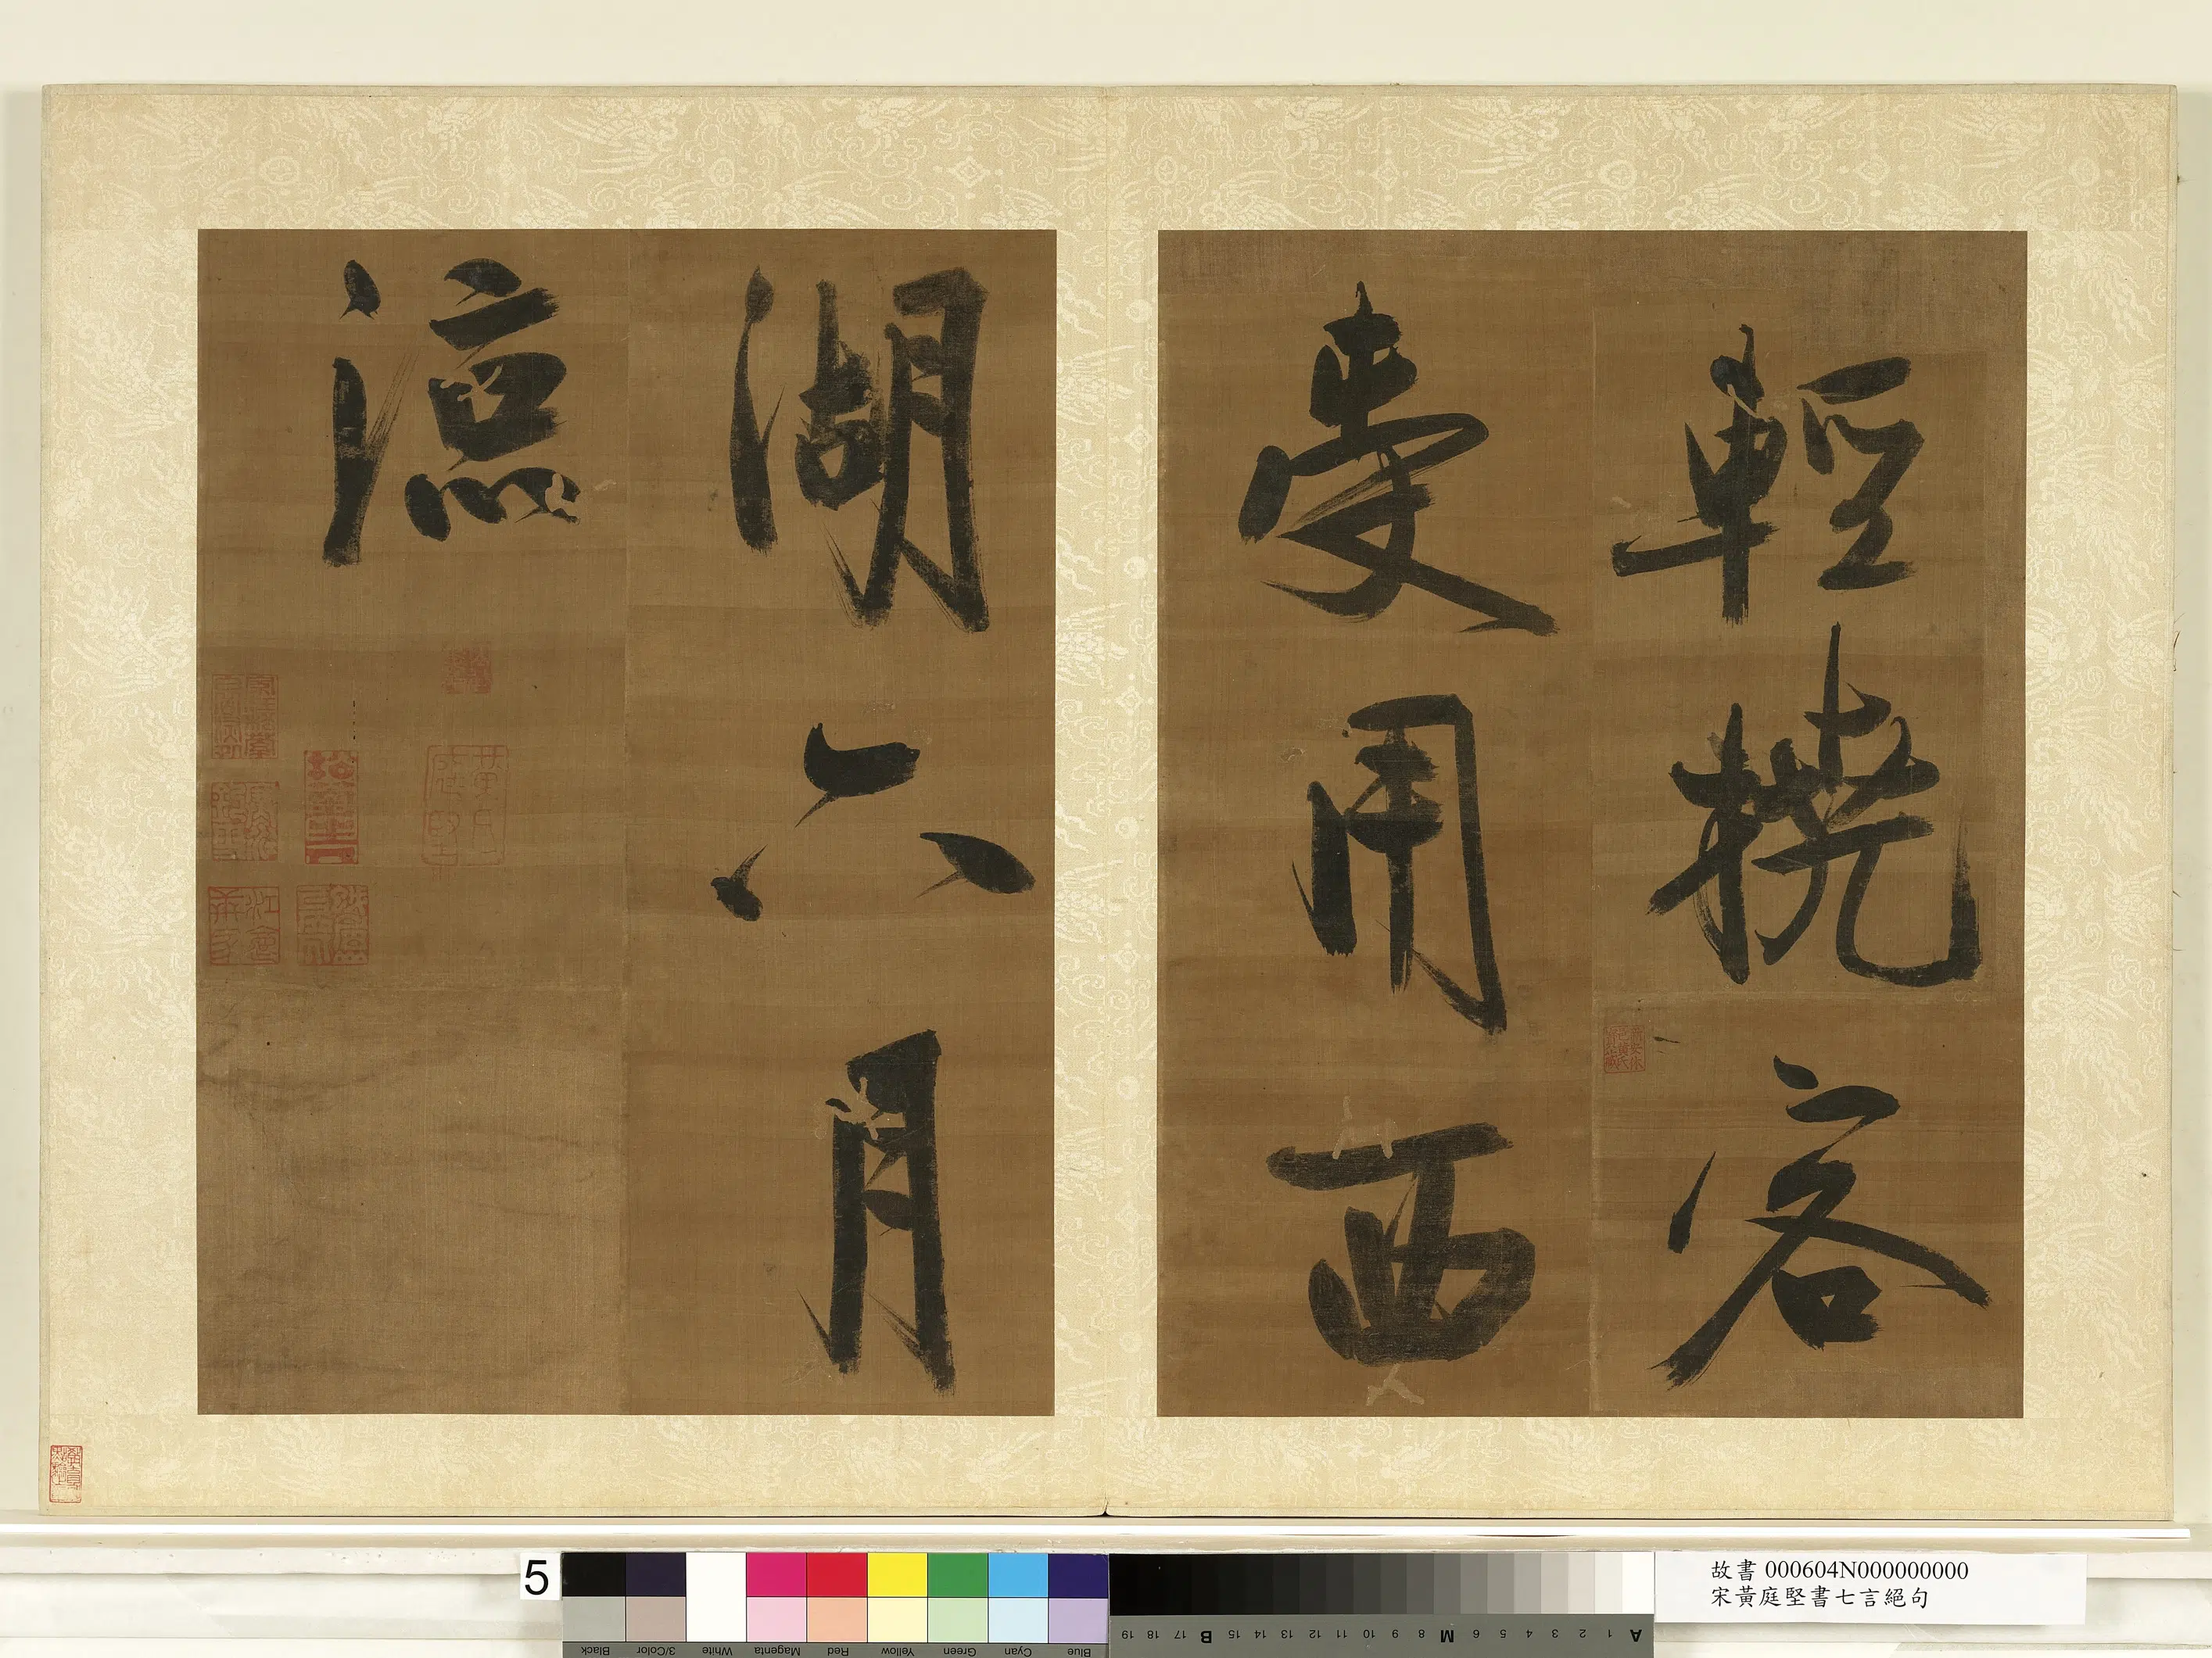 輕橈客
受用西
湖六月
涼
5
Black 3/Color White Magenta Red Yellow Green Cyan Blue
19 18 17 B 15 14 13 12 11 10 9 8 M 6 5 4 3 2 1 A
故書 000604N000000000
宋黃庭堅書七言絕句